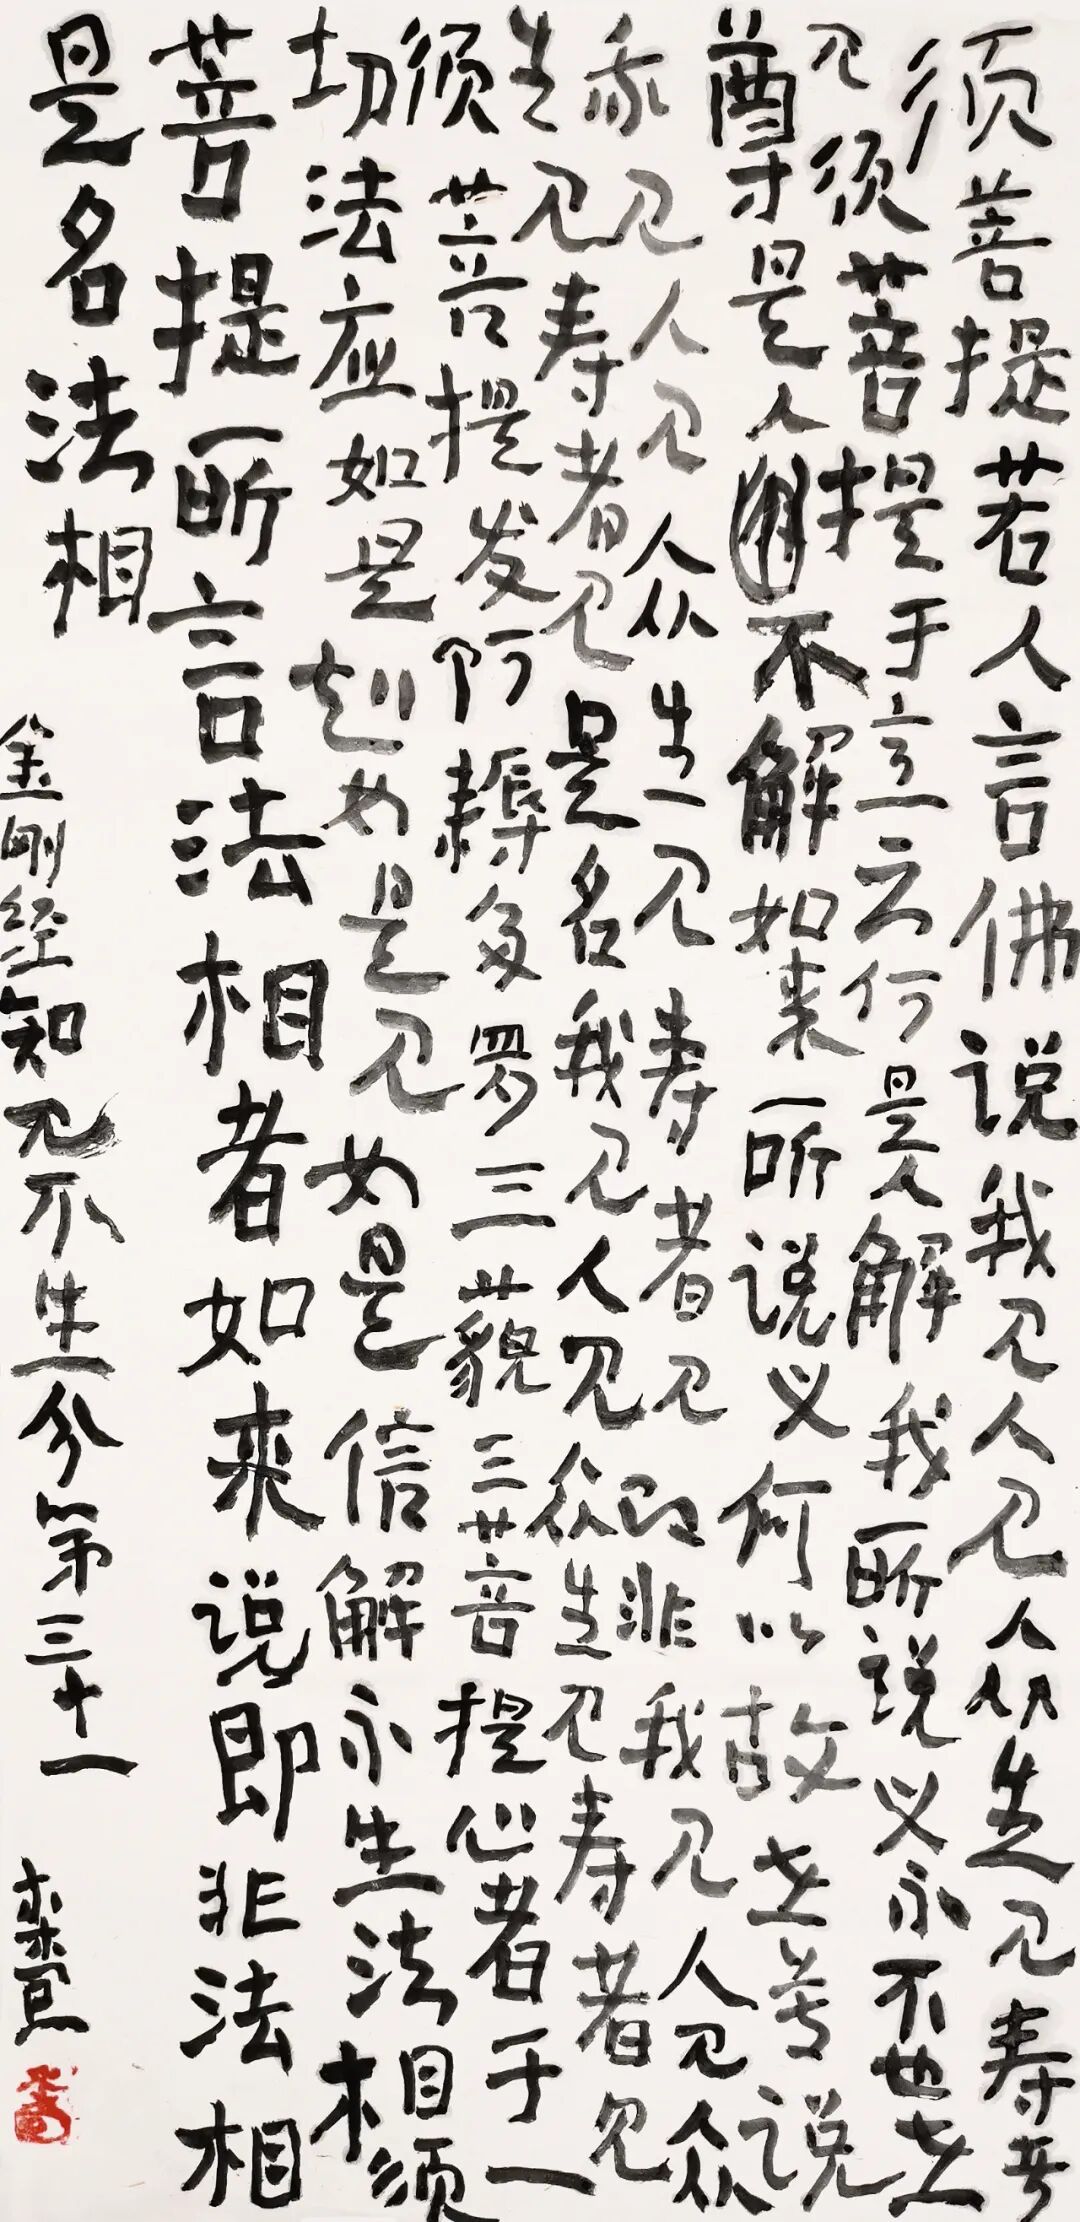 须菩提若人言佛说我见人见众生见寿者
见须菩提于意云何是人解我所说义不不也世
尊是人不解如来所说义何以故世尊说
我见人见众生见寿者见即非我见人见众
生见寿者见是名我见人见众生见寿者见
须菩提发阿耨多罗三藐三菩提心者于一
切法应如是知如是见如是信解不生法相须
菩提所言法相者如来说即非法相
是名法相
金刚经知见不生分第三十一